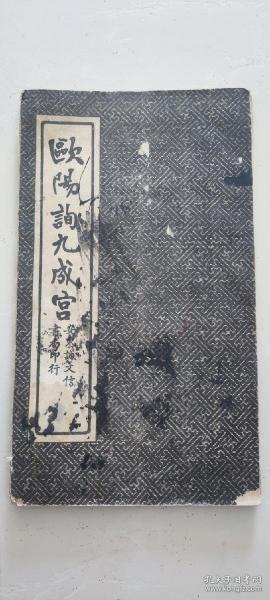 歐陽詢九成宮
文信
書局印行
孔夫子旧书网